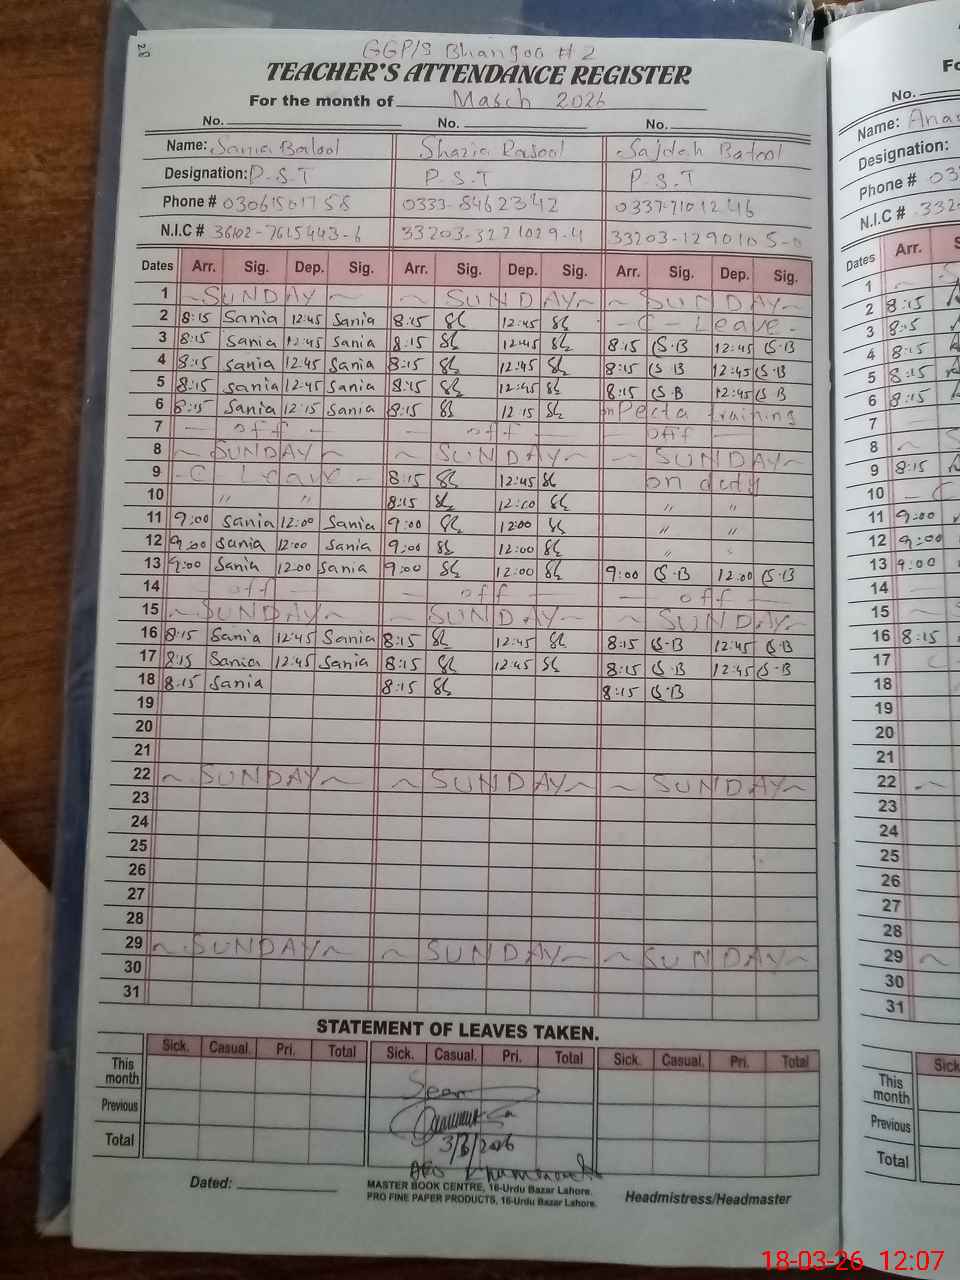 28
GGP/S Bhangoo #2
TEACHER'S ATTENDANCE REGISTER
For the month of March 2026
No. No. No.
Name: Sania Batool Shazia Rasool Sajdah Batool
Designation: P.S.T P.S.T P.S.T
Phone # 03061501758 0333-8462342 0337-7101246
N.I.C # 36102-7615443-6 33203-3221029-4 33203-1290105-0
Dates Arr. Sig. Dep. Sig. Arr. Sig. Dep. Sig. Arr. Sig. Dep. Sig.
1 ~ SUNDAY ~ ~ SUNDAY ~ ~ SUNDAY ~
2 8:15 Sania 12:45 Sania 8:15 12:45 - C - Leave -
3 8:15 Sania 12:45 Sania 8:15 12:45 8:15 S.B 12:45 S.B
4 8:15 Sania 12:45 Sania 8:15 12:45 8:15 S.B 12:45 S.B
5 8:15 Sania 12:45 Sania 8:15 12:45 8:15 S.B 12:45 S B
6 8:15 Sania 12:15 Sania 8:15 12:15 on Pecta training
7 - off - - off - - off -
8 ~ SUNDAY ~ ~ SUNDAY ~ ~ SUNDAY ~
9 - C Leave - 8:15 12:45 on duty
10 " " 8:15 " "
11 9:00 Sania 12:00 Sania 9:00 12:00 " "
12 9:00 Sania 12:00 Sania 9:00 12:00 " "
13 9:00 Sania 12:00 Sania 9:00 12:00 9:00 S.B 12:00 S.B
14 - off - - off - - off -
15 ~ SUNDAY ~ ~ SUNDAY ~ ~ SUNDAY ~
16 8:15 Sania 12:45 Sania 8:15 12:45 8:15 S.B 12:45 S.B
17 8:15 Sania 12:45 Sania 8:15 12:45 8:15 S.B 12:45 S.B
18 8:15 Sania 8:15 8:15 S.B
19
20
21
22 ~ SUNDAY ~ ~ SUNDAY ~ ~ SUNDAY ~
23
24
25
26
27
28
29 ~ SUNDAY ~ ~ SUNDAY ~ ~ SUNDAY ~
30
31
STATEMENT OF LEAVES TAKEN.
Sick. Casual. Pri. Total Sick. Casual. Pri. Total Sick. Casual. Pri. Total
This month
Previous
Total
Seen
3/3/2026
AEO
Dated:
MASTER BOOK CENTRE, 16-Urdu Bazar Lahore.
PRO FINE PAPER PRODUCTS, 16-Urdu Bazar Lahore.
Headmistress/Headmaster
No.
Name: Anas
Designation:
Phone # 03
N.I.C # 332
Dates Arr.
1 ~
2 8:15
3 8:15
4 8:15
5 8:15
6 8:15
7 -
8 ~
9 8:15
10 - C
11 9:00
12 9:00
13 9:00
14 -
15 ~
16 8:15
17
18
19
20
21
22 ~
23
24
25
26
27
28
29 ~
30
31
Sick
This month
Previous
Total
18-03-26 12:07